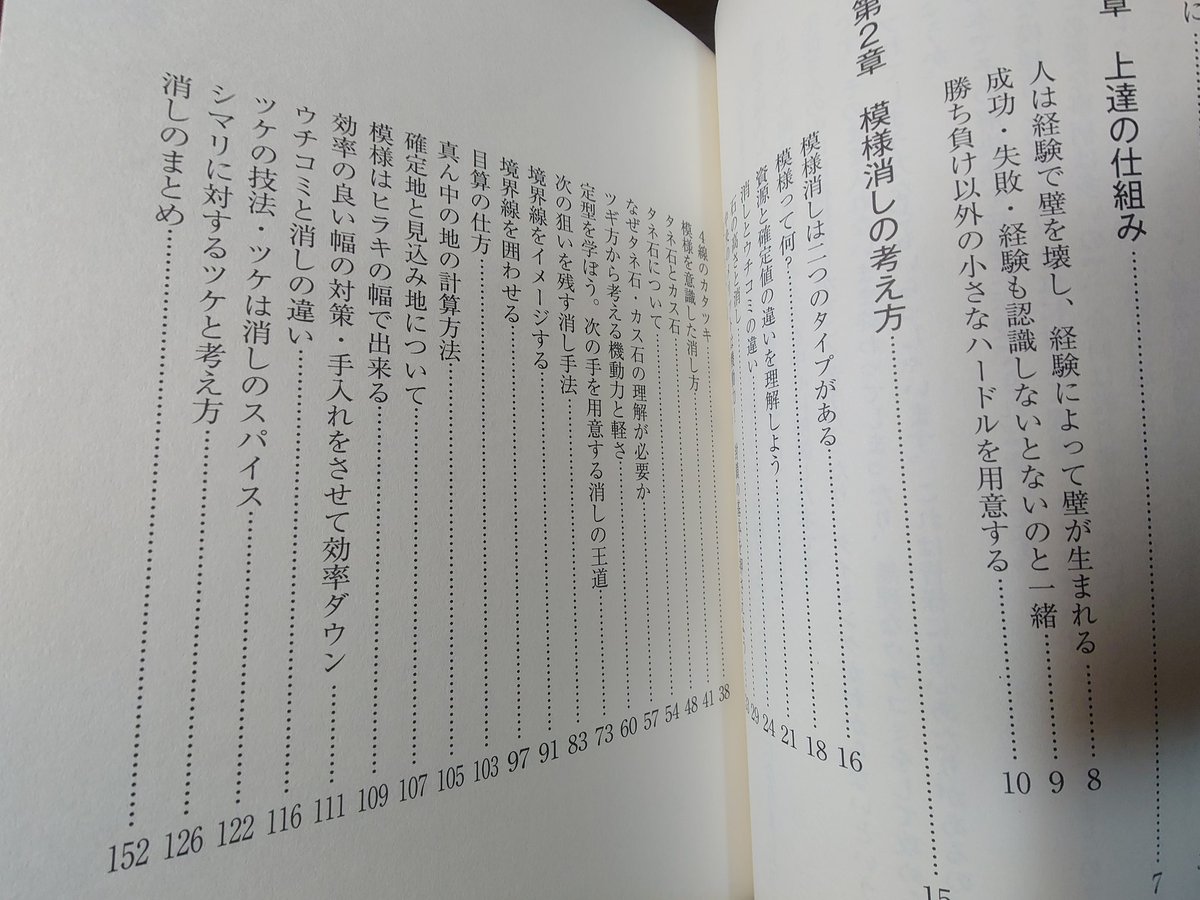 章　上達の仕組み……7
人は経験で壁を壊し、経験によって壁が生まれる……8
成功・失敗・経験も認識しないとないのと一緒……9
勝ち負け以外の小さなハードルを用意する……10
第2章　模様消しの考え方……15
模様消しは二つのタイプがある……16
模様って何？……18
資源と確定値の違いを理解しよう……21
消しとウチコミの違い……24
石の高さと消し……29
4線のカタツキ……38
模様を意識した消し方……41
タネ石とカス石……48
タネ石について……54
なぜタネ石・カス石の理解が必要か……57
ツギ方から考える機動力と軽さ……60
定型を学ぼう。次の手を用意する消しの王道……73
次の狙いを残す消し手法……83
境界線をイメージする……91
境界線を囲わせる……97
目算の仕方……103
真ん中の地の計算方法……105
確定地と見込み地について……107
模様はヒラキの幅で出来る……109
効率の良い幅の対策・手入れをさせて効率ダウン……111
ウチコミと消しの違い……116
ツケの技法・ツケは消しのスパイス……122
シマリに対するツケと考え方……126
消しのまとめ……152